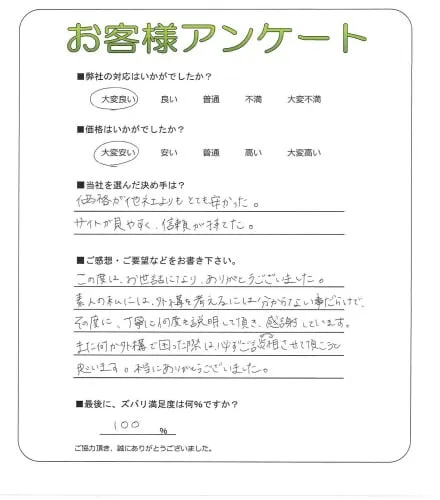 お客様アンケート
■弊社の対応はいかがでしたか？
大変良い 良い 普通 不満 大変不満
■価格はいかがでしたか？
大変安い 安い 普通 高い 大変高い
■当社を選んだ決め手は？
価格が他社よりもとても安かった。
サイトが見やすく、信頼が持てた。
■ご感想・ご要望などをお書き下さい。
この度は、お世話になり、ありがとうございました。
素人の私には、外構を考えるには分からない事だらけで、
その度に、丁寧に何度も説明して頂き、感謝しています。
また何か外構で困った際は、必ずご談相させて頂こうと
思います。本当にありがとうございました。
■最後に、ズバリ満足度は何%ですか？
100 %
ご協力頂き、誠にありがとうございました。